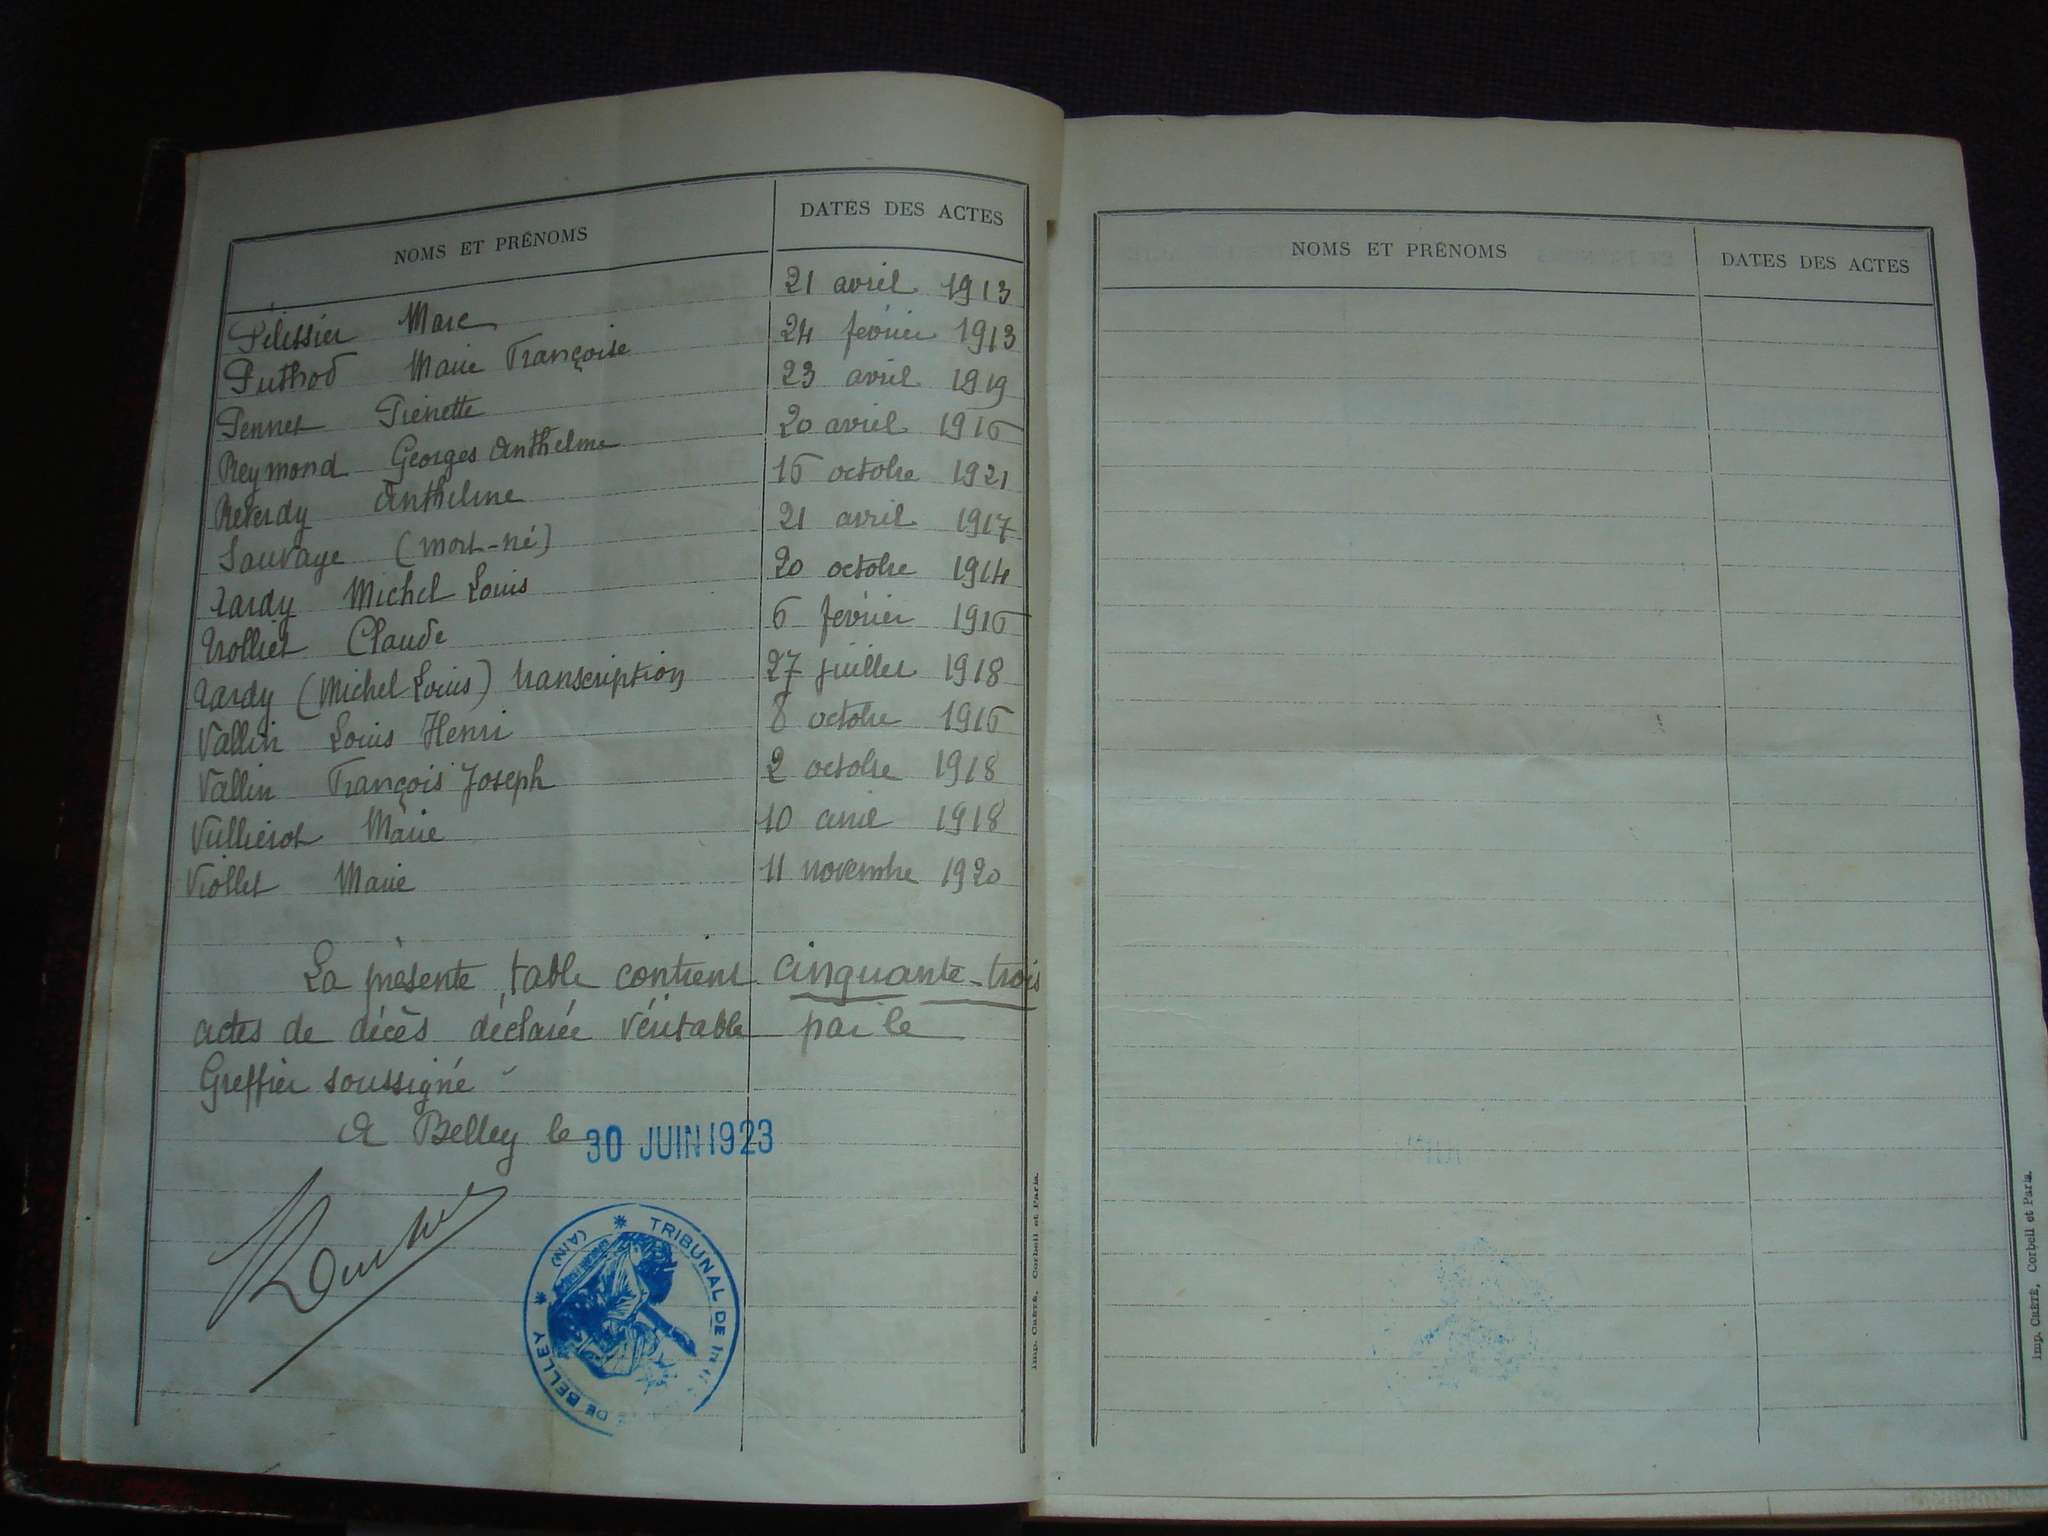 NOMS ET PRÉNOMS DATES DES ACTES
Pélissier Marc 21 avril 1913
Puthod Marie Françoise 24 février 1913
Pennet Pierrette 23 avril 1919
Reymond Georges Anthelme 20 avril 1916
Reverdy Anthelme 16 octobre 1921
Sauvage (mort-né) 21 avril 1917
Tardy Michel Louis 20 octobre 1914
Trolliet Claude 6 février 1916
Tardy (Michel Louis) transcription 27 juillet 1918
Vallin Louis Henri 8 octobre 1916
Vallin François Joseph 2 octobre 1918
Vullierot Marie 10 avril 1918
Viollet Marie 11 novembre 1920
La présente table contient cinquante-trois
actes de décès déclarée véritable par le
Greffier soussigné
A Belley le 30 JUIN 1923
TRIBUNAL DE DE BELLEY (AIN)
Imp. CRÉTÉ, Corbeil et Paris.
NOMS ET PRÉNOMS DATES DES ACTES
Imp. CRÉTÉ, Corbeil et Paris.